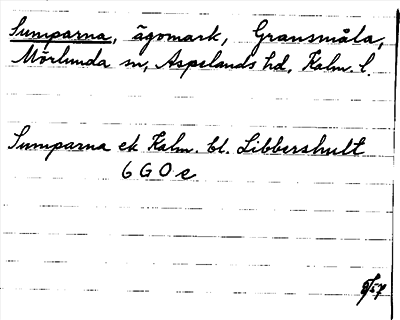 Sumparna, ägomark, Gransmåla,
Mörlunda sn, Aspelands hd, Kalm. l.
Sumparna ek Kalm. bl. Libbershult
6 G O e